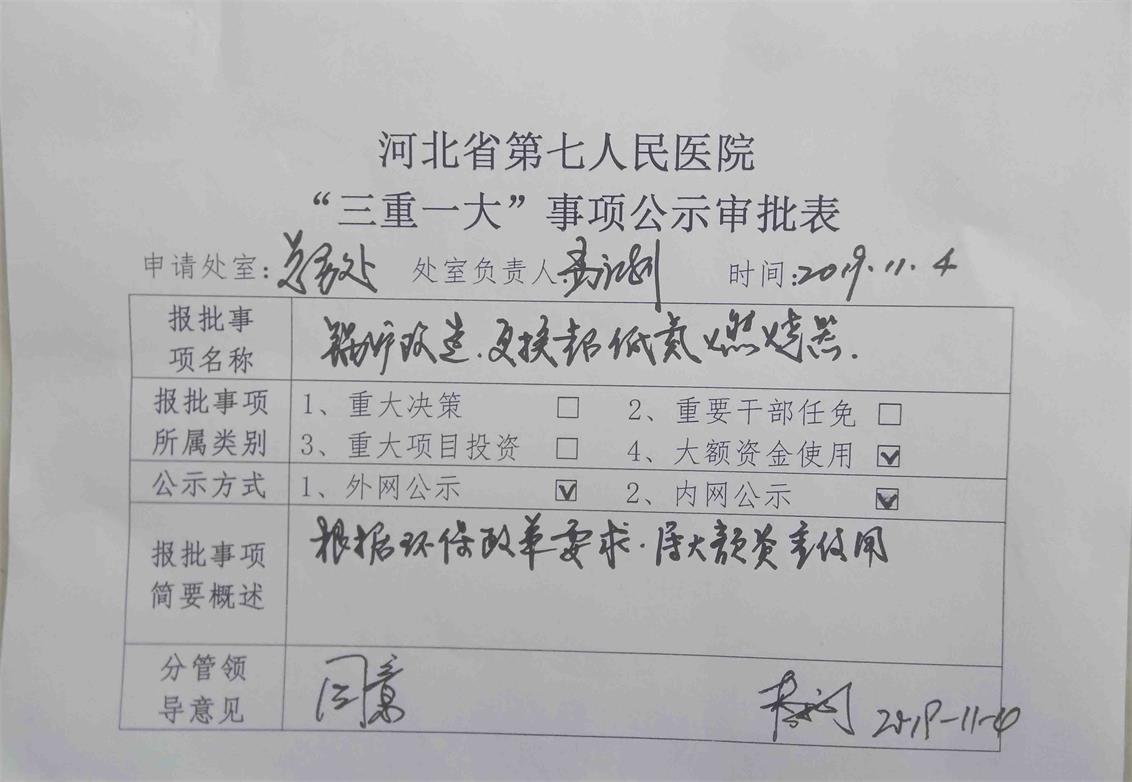 河北省第七人民医院
“三重一大”事项公示审批表
申请处室：总务处 处室负责人 时间：2019.11.4
报批事项名称 锅炉改造.更换超低氮燃烧器.
报批事项所属类别 1、重大决策 □ 2、重要干部任免 □
3、重大项目投资 □ 4、大额资金使用 ☑
公示方式 1、外网公示 ☑ 2、内网公示 ☑
报批事项简要概述 根据环保政革要求.属大额资金使用
分管领导意见 同意 2019-11-4